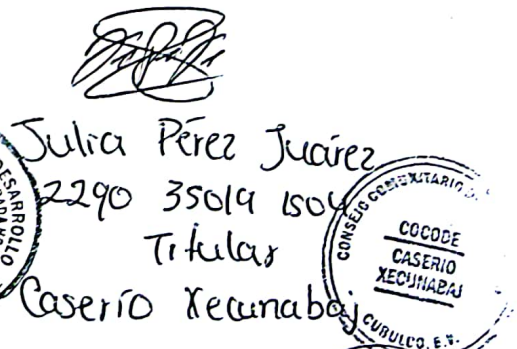 Julia Pérez Juárez
2290 35019 1504
Titular
Caserío Xecunabaj
CONSEJO COMUNITARIO D
COCODE
CASERIO
XECUNABAJ
CUBULCO, B.V.
DESARROLLO